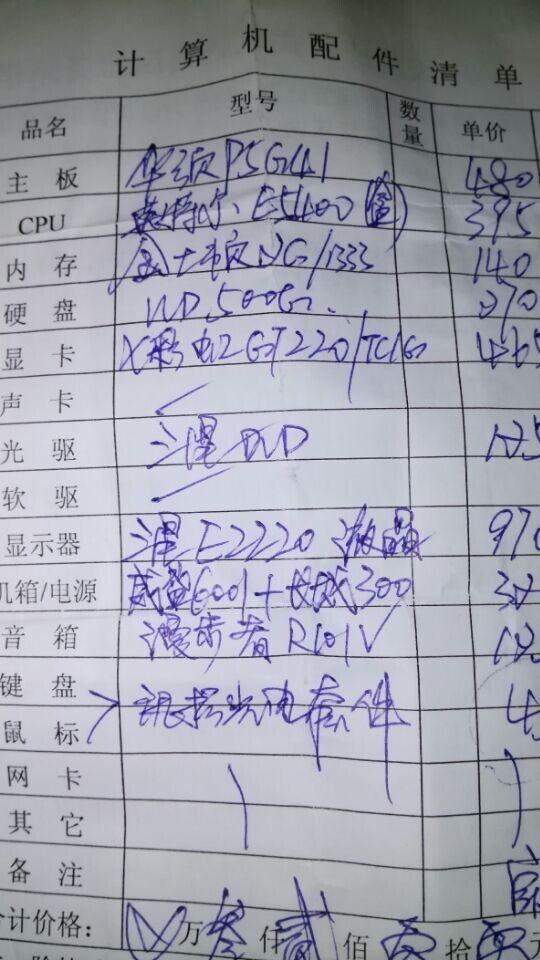 计算机配件清单
品名 型号 数量 单价
主板 华硕P5G41 480
CPU 英特尔 E5400(盒) 395
内存 金士顿2G/1333 140
硬盘 WD 500G 270
显卡 七彩虹GT220/ 465
声卡 ✓
光驱 三星DVD
软驱 ✓
显示器 三星E2220 液晶 970
机箱/电源 6001+长城300
音箱 漫步者 R101V
键盘 光电套件
鼠标
网卡
其它
备注
合计价格: 万叁仟贰佰 拾 元